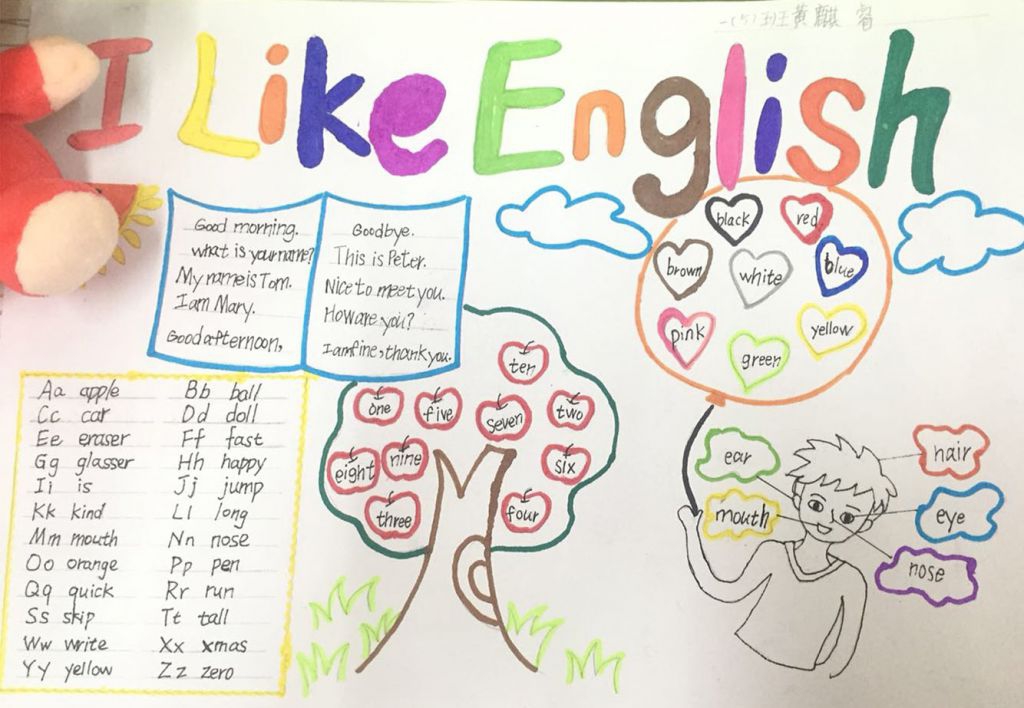 一(5)班黄麒睿
I Like English
Good morning.
what is your name?
My name is Tom.
I am Mary.
Good afternoon,
Goodbye.
This is Peter.
Nice to meet you.
How are you?
I am fine, thank you.
black
red
brown
white
blue
pink
green
yellow
Aa apple Bb ball
Cc car Dd doll
Ee eraser Ff fast
Gg glasser Hh happy
Ii is Jj jump
Kk kind Ll long
Mm mouth Nn nose
Oo orange Pp pen
Qq quick Rr run
Ss skip Tt tall
Ww write Xx xmas
Yy yellow Zz zero
ten
one
five
seven
two
eight
nine
six
three
four
ear
hair
mouth
eye
nose